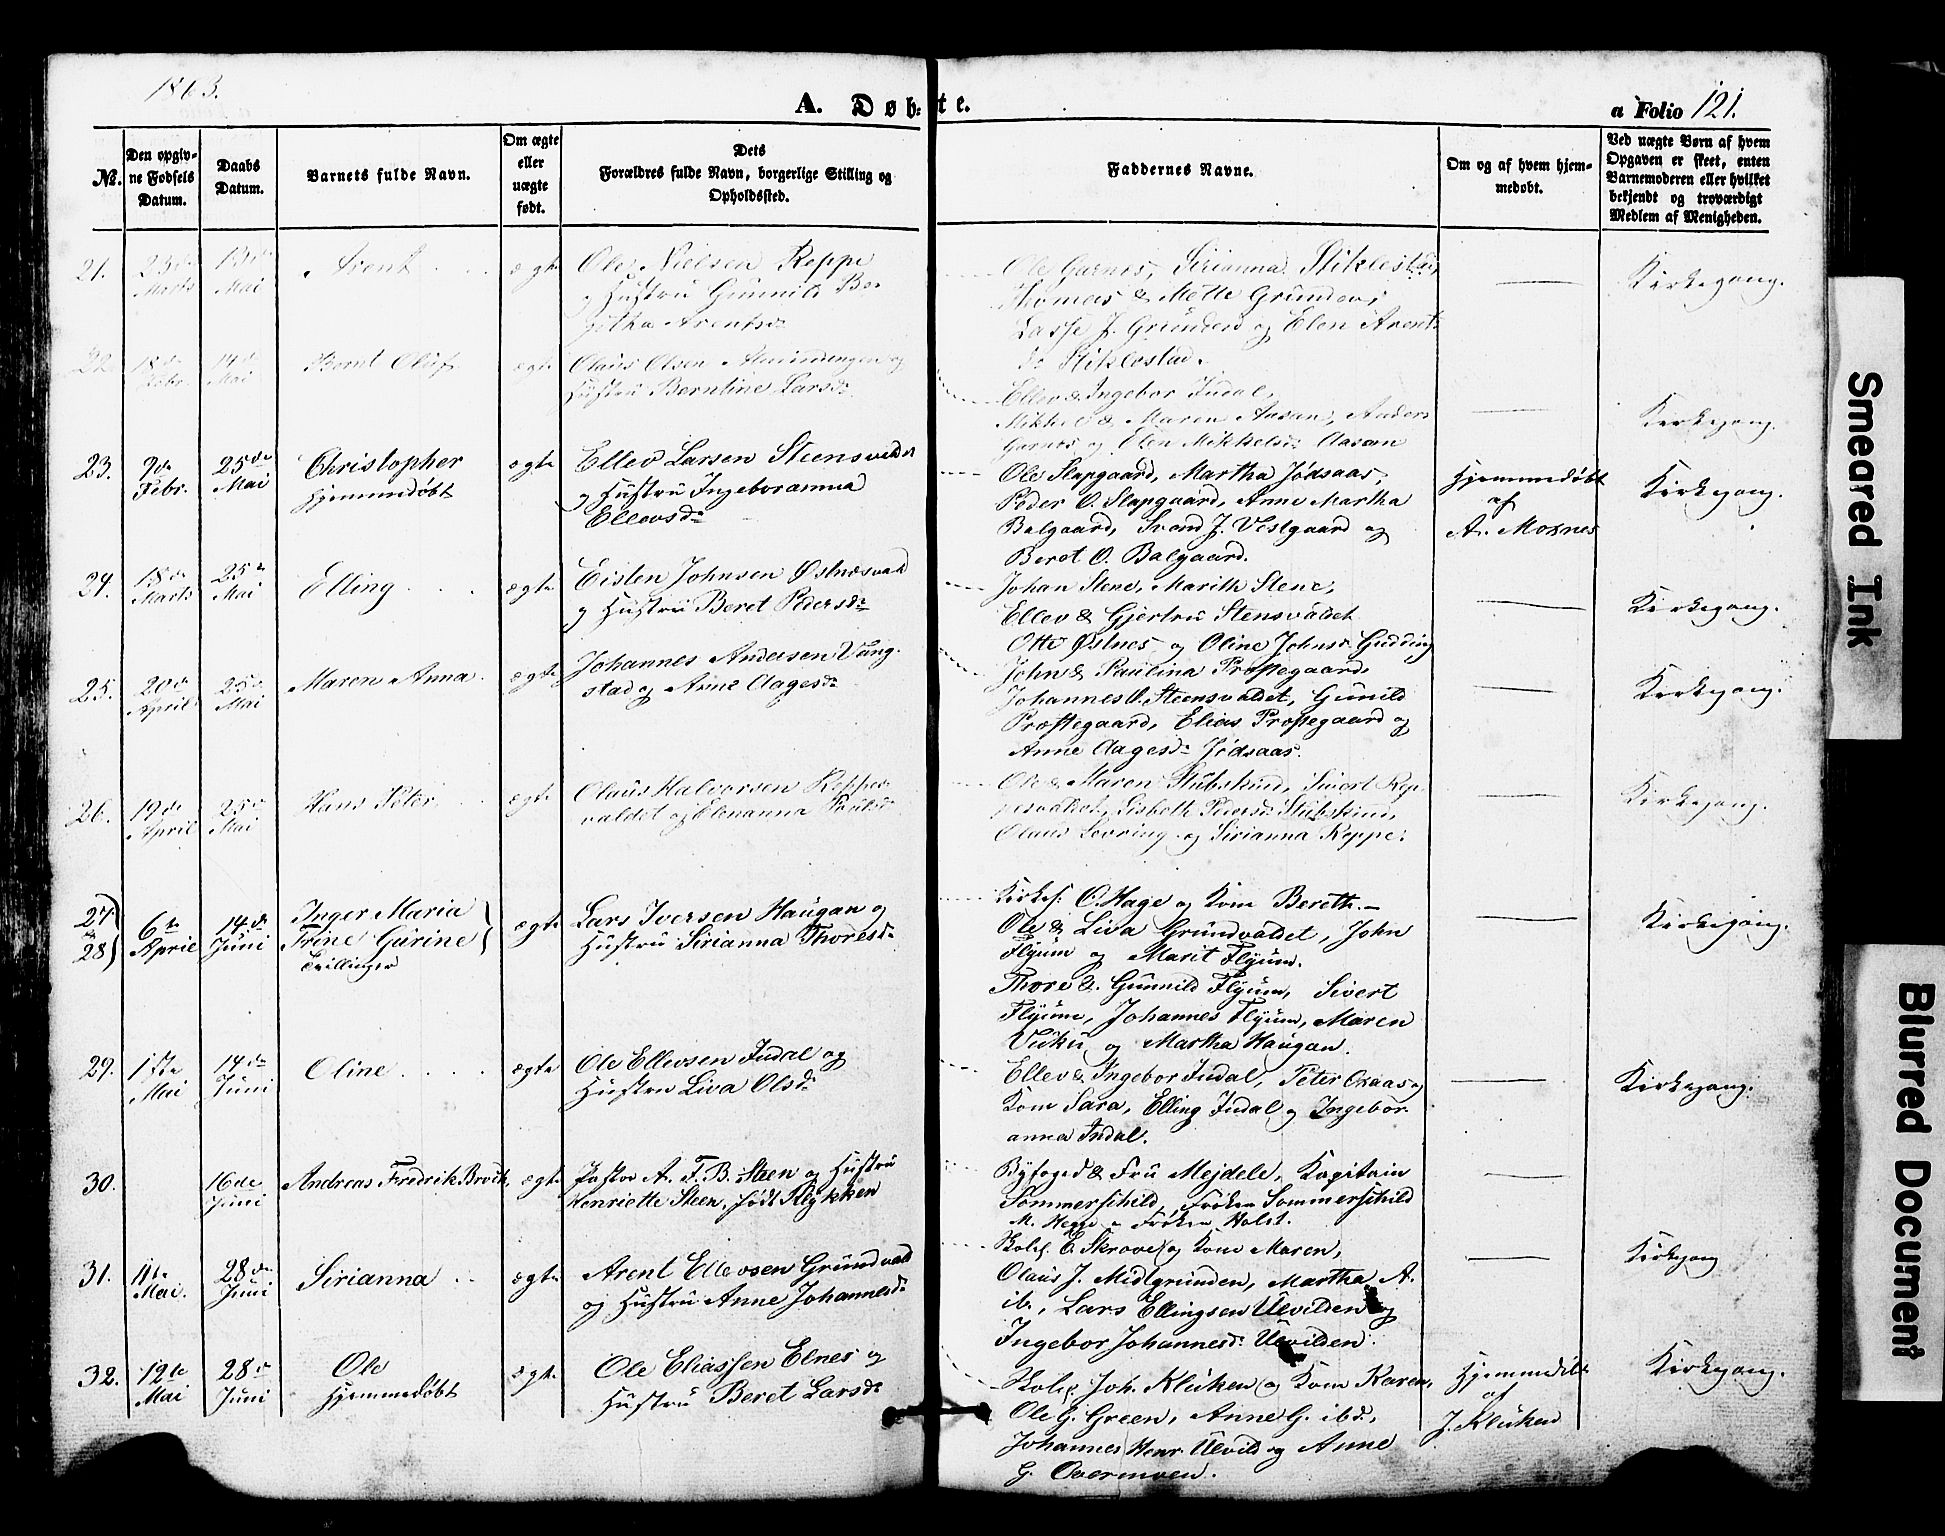 1863.
A. Døbte.
a Folio 121.
No.
Den opgivne Fødsels Datum.
Daabs Datum.
Barnets fulde Navn.
Om ægte eller uægte født.
Dets Forældres fulde Navn, borgerlige Stilling og Opholdssted.
Faddernes Navne.
Om og af hvem hjemmedøbt.
Ved uægte Børn af hvem Opgaven er skeet, enten Barnemoderen eller hvilket bekjendt og troværdigt Medlem af Menigheden.
21. 23de Marts 13de Mai Arent ægte
Oler Nielsen Reppe
og Hustru Gunnild Be-
githa Arentsdr
Ole Garnes, Sirianna Stiklestad,
Thomas & Mette Grunden,
Lasse J. Grunden og Elen Arents-
dr Stiklestad.
Kirkegang.
22. 18de Febr. 14de Mai Bernt Oluf ægte
Olaus Olsen Almindingen og
Hustru Berntine Larsdr
Ellev & Ingebor Indal,
Mikkel & Maren Aasan, Anders
Garnes og Elen Mikkelsdr Aasan
Kirkegang.
23. 9de Febr. 25de Mai Christopher Hjemmedøbt ægte
Ellev Larsen Steensvald
og Hustru Ingeboranna
Ellevsdr
Ole Slapgaard, Martha Jødsaas,
Peder O. Slapgaard, Anne Martha
Balgaard, Svend J. Vestgaard og
Beret O. Balgaard.
Hjemmedøbt
af
A. Moxnes
Kirkegang.
24. 18de Marts 25de Mai Elling ægte
Eisten Johnsen Østnæsvald
og Hustru Beret Pedersdr
Johan Stene, Marith Stene,
Ellev & Gjertru Stensvaldet
Otte Østnes og Oline Johnsdr Gudding
Kirkegang.
25. 20de April 25de Mai Maren Anna ægte
Johannes Andersen Vang-
stad og Anne Aagesdr
John & Paulina Præstegaard
Johannes O. Steensvaldet, Gunild
Præstegaard, Elias Præstegaard og
Anne Aagesdr Jødsaas.
Kirkegang.
26. 19de April 25de Mai Hans Peter ægte
Olaus Halvorsen Reppes-
valdet og Elenanna Paulsdr
Ole & Maren Stubskind, Sivert Rep-
pesvaldet, Lisbeth Pedersdr Stubskind,
Olaus Levring og Sirianna Reppe.
Kirkegang.
27. & 28. 6te April 14de Juni Inger Maria
Trine Gurine
Tvillinger ægte
Lars Iversen Haugan og
Hustru Sirianna Thoresdr
Kirkes: O. Hage og Kone Bereth.
Ole & Liva Grundvaldet, John
Flyum og Marit Flyum.
Thore & Gunnild Flyum, Sivert
Flyum, Johannes Flyum, Maren
Vuku og Martha Haugan.
Kirkegang.
29. 1ste Mai 14de Juni Oline ægte
Ole Ellevsen Indal og
Hustru Liva Olsdr
Ellev & Ingebor Indal, Peter Oxaas og
Kone Sara, Elling Indal og Ingebor-
anna Indal.
Kirkegang.
30. 16de Juni Andreas Fredrik Broch ægte
Pastor A. F. B. Steen og Hustru
Henriette Steen, født Slykken
Byfoged & Fru Mejdele, Kapitain
Sommerschild, Frøken Sommerschild
M. Hegge & Frøken Holst.
31. 11te Mai. 28de Juni Sirianna ægte
Arent Ellevsen Grundvald
og Hustru Anne Johannesdr
Skole: E. Skrove og Kone Maren,
Olaus J. Midtgrunden, Martha A.
ib., Lars Ellingsen Ulvilden og
Ingebor Johannesdr Ulvilden.
Kirkegang
32. 12te Mai 28de Juni Ole Hjemmedøbt ægte
Ole Eliassen Elnes og
Hustru Beret Larsdr
Skole: Joh. Kluken og Kone Karen,
Ole G. Green, Anne G. ibd.,
Johannes Henr. Ulvild og Anne
G. Overmoen.
Hjemmedøbt
af
J. Kluken
Kirkegang.
Smeared Ink
Blurred Document